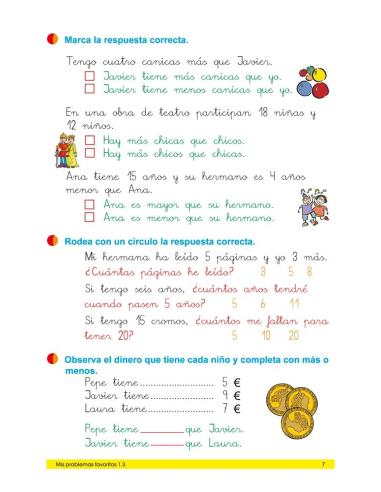 Marca la respuesta correcta.
Tengo cuatro canicas más que Javier.
Javier tiene más canicas que yo.
Javier tiene menos canicas que yo.
En una obra de teatro participan 18 niñas y
12 niños.
Hay más chicas que chicos.
Hay más chicos que chicas.
Ana tiene 15 años y su hermano es 4 años
menor que Ana.
Ana es mayor que su hermano.
Ana es menor que su hermano.
Rodea con un círculo la respuesta correcta.
Mi hermana ha leído 5 páginas y yo 3 más.
¿Cuántas páginas he leído? 3 5 8
Si tengo seis años, ¿cuántos años tendré
cuando pasen 5 años? 5 6 11
Si tengo 15 cromos, ¿cuántos me faltan para
tener 20? 5 10 20
Observa el dinero que tiene cada niño y completa con más o
menos.
Pepe tiene.......................... 5 €
Javier tiene........................ 9 €
Laura tiene........................ 7 €
Pepe tiene ________ que Javier.
Javier tiene ________ que Laura.
Mis problemas favoritos 1.3. 7